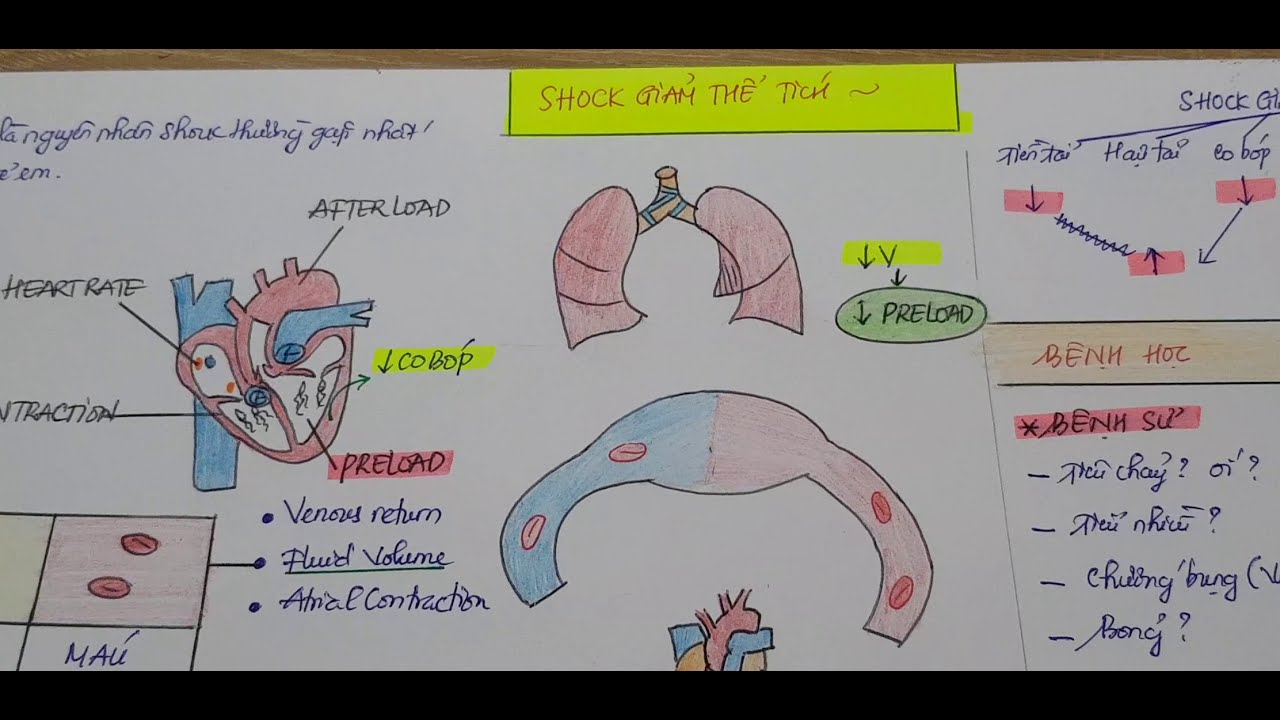 SHOCK GIẢM THỂ TÍCH ~
là nguyên nhân shock thường gặp nhất
ẻ em.
AFTERLOAD
HEART RATE
↓ CO BÓP
NTRACTION
PRELOAD
• Venous return
• Fluid Volume
• Atrial Contraction
MÁU
↓ V
↓
↓ PRELOAD
SHOCK GIẢ
Tiền tải Hậu tải Co bóp
↓ ↓
↑
BỆNH HỌC
* BỆNH SỬ
– Tiêu chảy? ói?
– Tiểu nhiều?
– Chướng bụng (V
– Bỏng?